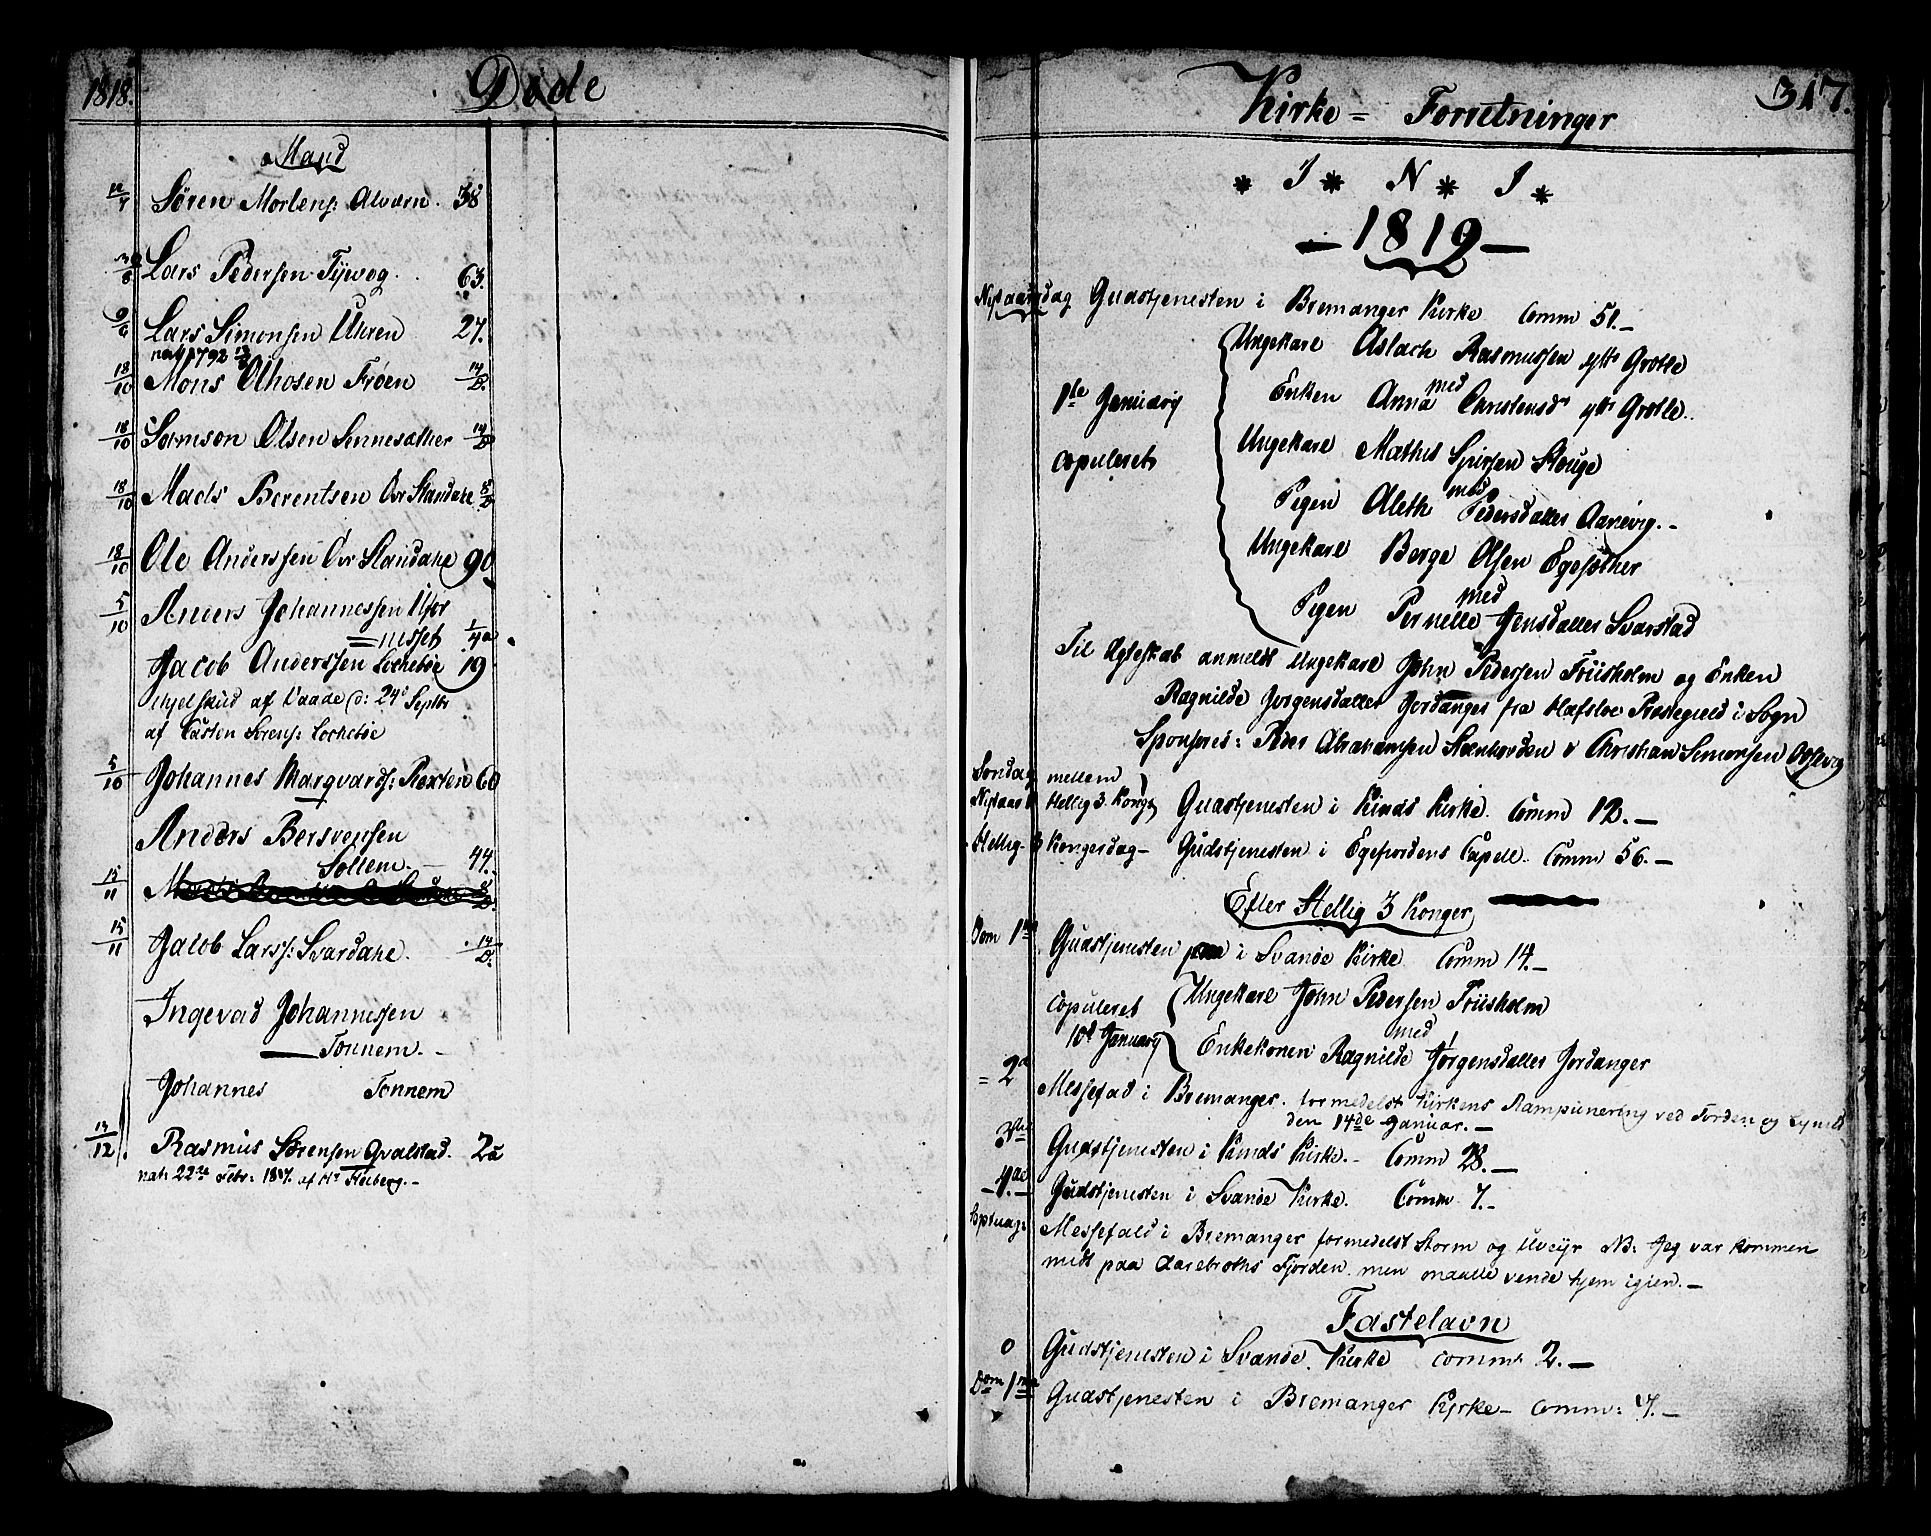 1818.
Døde
Mand
12/7 Søren Mortens: Alværn. 38
Lars Pedersen Tÿevog. 63.
9/6 Lars Simonsen Uhren 27.
nat 1792
18/10 Mons Olhosen Frøen 14/D.
18/10 Samson Olsen Sennesæther 14/D
18/10 Mads Berentsen Ovr Standahl 8/D
18/10 Ole Anderssen Ovr Standahl 90
5/10 Anders Johannessen Ufør
=nesset 1/4 a
Jacob Anderssen Lochebøe 19
ihjelskud af Vaade d: 24de Septbr
af Casten Sørens: Lochebøe
5/10 Johannes Marqvards: Rexten 60
Anders Bersvensen
Solem. 44.
15/11
15/11 Jacob Lars: Svardahl. 14/D.
Ingevad Johannessen
Tonnem.
Johannes Tonnem
13/12 Rasmus Sørensen Qvalstad. 2a
nat: 22de Febr: 1817. af Hr Heiberg.
317.
Kirke= Forretninger
* I * N * I *
1819
Nytaarsdag Gudstjenesten i Bremanger Kirke Comm 51.
Ungekarl Aslach Rasmussen ytt: Grotle
med
1ste Januarÿ Enken Anna Christensd: ytt: Grotle.
copuleret Ungekarl Mathis Spirsen Houge
med
Pigen Aleth Pedersdatter Aanevig.
Ungekarl Berge Olsen Egesæther
med
Pigen Pernelle Jensdatter Svarstad
Til Ægteskab anmeldt Ungekarl John Pedersen Friisholm og Enken
Ragnilde Jørgensdatter Jordanger fra Hafsloe Præstegield i Sogn
Sponsores: Peder Abrahamsen & Christian Simonsen
Søndag mellem
Nytaar & Hellig 3. Konger Gudstjenesten i Kinds Kirke. Comm 12.
Hellig 3 Kongersdag Gudstjenesten i Egefiordens Capell. Comm 56.
Efter Hellig 3 Konger
Dom 1ma Gudstjenesten i Svanøe Kirke Comm 14.
copuleret Ungekarl John Pedersen Friisholm
med
10d Januarÿ Enkekonen Ragnilde Jørgensdatter Jordanger
= 2a Messefald i Bremanger. formedelst Kirkens Rampunering ved Torden og Lyneld
den 14de Januar.
3tia Gudstjenesten i Kinds Kirke. Comm 28.
4ta Gudstjenesten i Svanøe Kirke. Comm 7.
Septuag: Messefald i Bremanger formedelst Storm og Uveÿr NB: Jeg var kommen
midt paa Aarebroths Fjorden men maatte vende hjem igien.
Fastelavn
O Gudstjenesten i Svanøe Kirke comm 2.
Dom 1ma Gudstjenesten i Bremanger Kÿrke comm: 7.